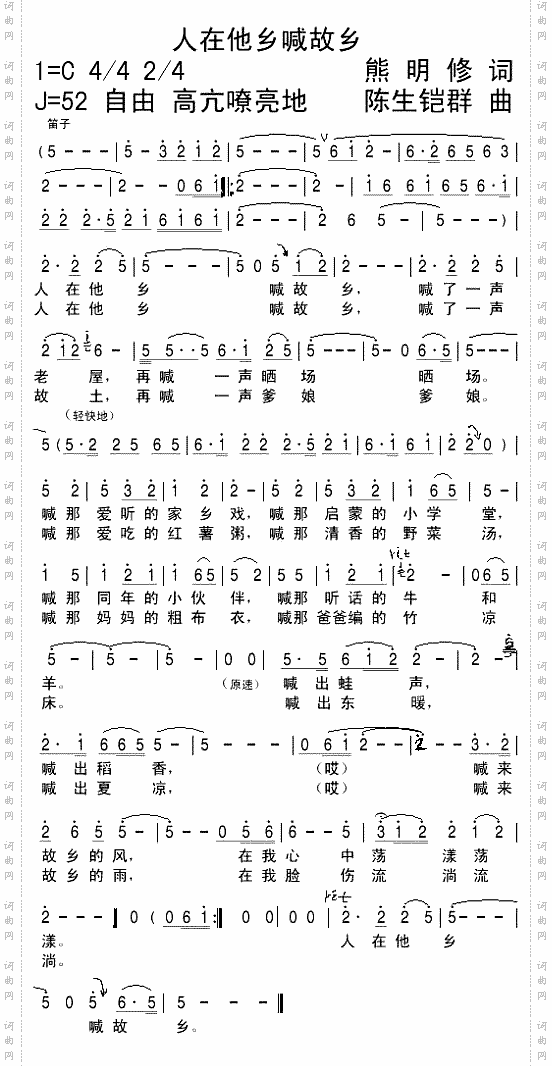 人在他乡喊故乡
1=C 4/4 2/4 熊 明 修 词
J=52 自由 高亢嘹亮地 陈生铠群 曲
笛子
(5 - - - | 5 - 3 2 1 2 | 5 - - - | 5 6 1 2 - | 6·2 6 5 6 3 |
2 - - - | 2 - - 0 6 1 ‖: 2 - - - | 2 - - - | 1 6 6 1 6 5 6·1 |
2 2 2·5 2 1 6 1 6 1 | 2 - - - | 2 6 5 - | 5 - - - )
2·2 2 5 | 5 - - - | 5 0 5 1 2 | 2 - - - | 2·2 2 5 |
人 在 他 乡 喊 故 乡, 喊 了 一 声
人 在 他 乡 喊 故 乡, 喊 了 一 声
2 1 2 6 - | 5 5··5 6·1 2 5 | 5 - - - | 5 - 0 6 5 | 5 - - - |
老 屋, 再 喊 一 声 晒 场 晒 场。
故 土, 再 喊 一 声 爹 娘 爹 娘。
(轻快地)
5 ( 5·2 2 5 6 5 | 5·2 5 | 6·1 2 2 2·5 2 1 | 6·1 6 1 | 2 2 0 )
5 2 | 5 3 2 | 1 2 | 2 - | 2 5 | 5 3 2 | 1 6 5 | 5 - |
喊 那 爱 听 的 家 乡 戏, 喊 那 启 蒙 的 小 学 堂,
喊 那 爱 吃 的 红 薯 粥, 喊 那 清 香 的 野 菜 汤,
rit
1 5 | 1 2 1 | 1 6 5 | 5 2 | 5 5 | 5 2 1 | 1 2 - | 0 6 5 |
喊 那 同 年 的 小 伙 伴, 喊 那 听 话 的 牛 和
喊 那 妈 妈 的 粗 布 衣, 喊 那 爸爸编 的 竹 凉
5 - | 5 - | 5 - | 0 0 | 5·5 6 1 2 | 2 - | 2 - |
羊。 (原速) 喊 出 蛙 声,
床。 喊 出 东 暖,
2·1 6 6 5 5 | 5 - - - | 0 6 1 2 - - | 2 - - 3·2 |
喊 出 稻 香, (哎) 喊 来
喊 出 夏 凉, (哎) 喊 来
2 6 5 5 - | 5 - - 0 5 6 | 6 - - 5 | 3 1 2 2 1 2 |
故 乡 的 风, 在 我 心 中 荡 漾 荡
故 乡 的 雨, 在 我 脸 伤 流 淌 流
2 - - - ‖ 0 ( 0 6 1 :‖ 0 0 | 0 0 | 2·2 2 5 | 5 - - - |
漾。 人 在 他 乡
淌。
5 0 5 6·5 | 5 - - - ‖
喊 故 乡。
词曲网